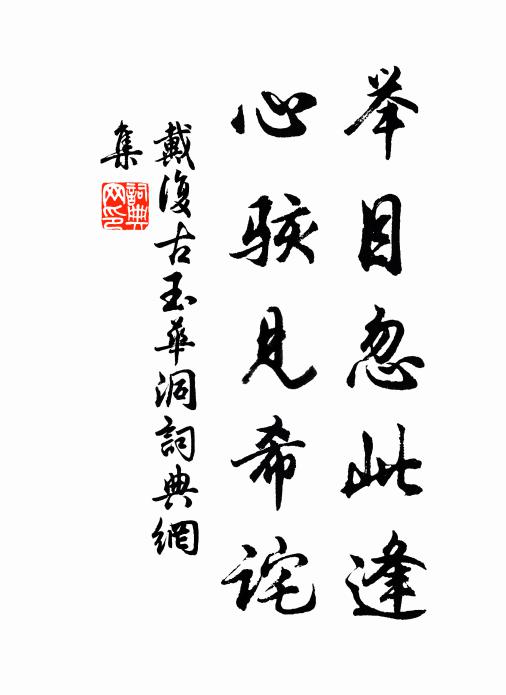 举目忽此逢
心骇见希诧
戴復古玉華洞詞典網
集
詞典
网印